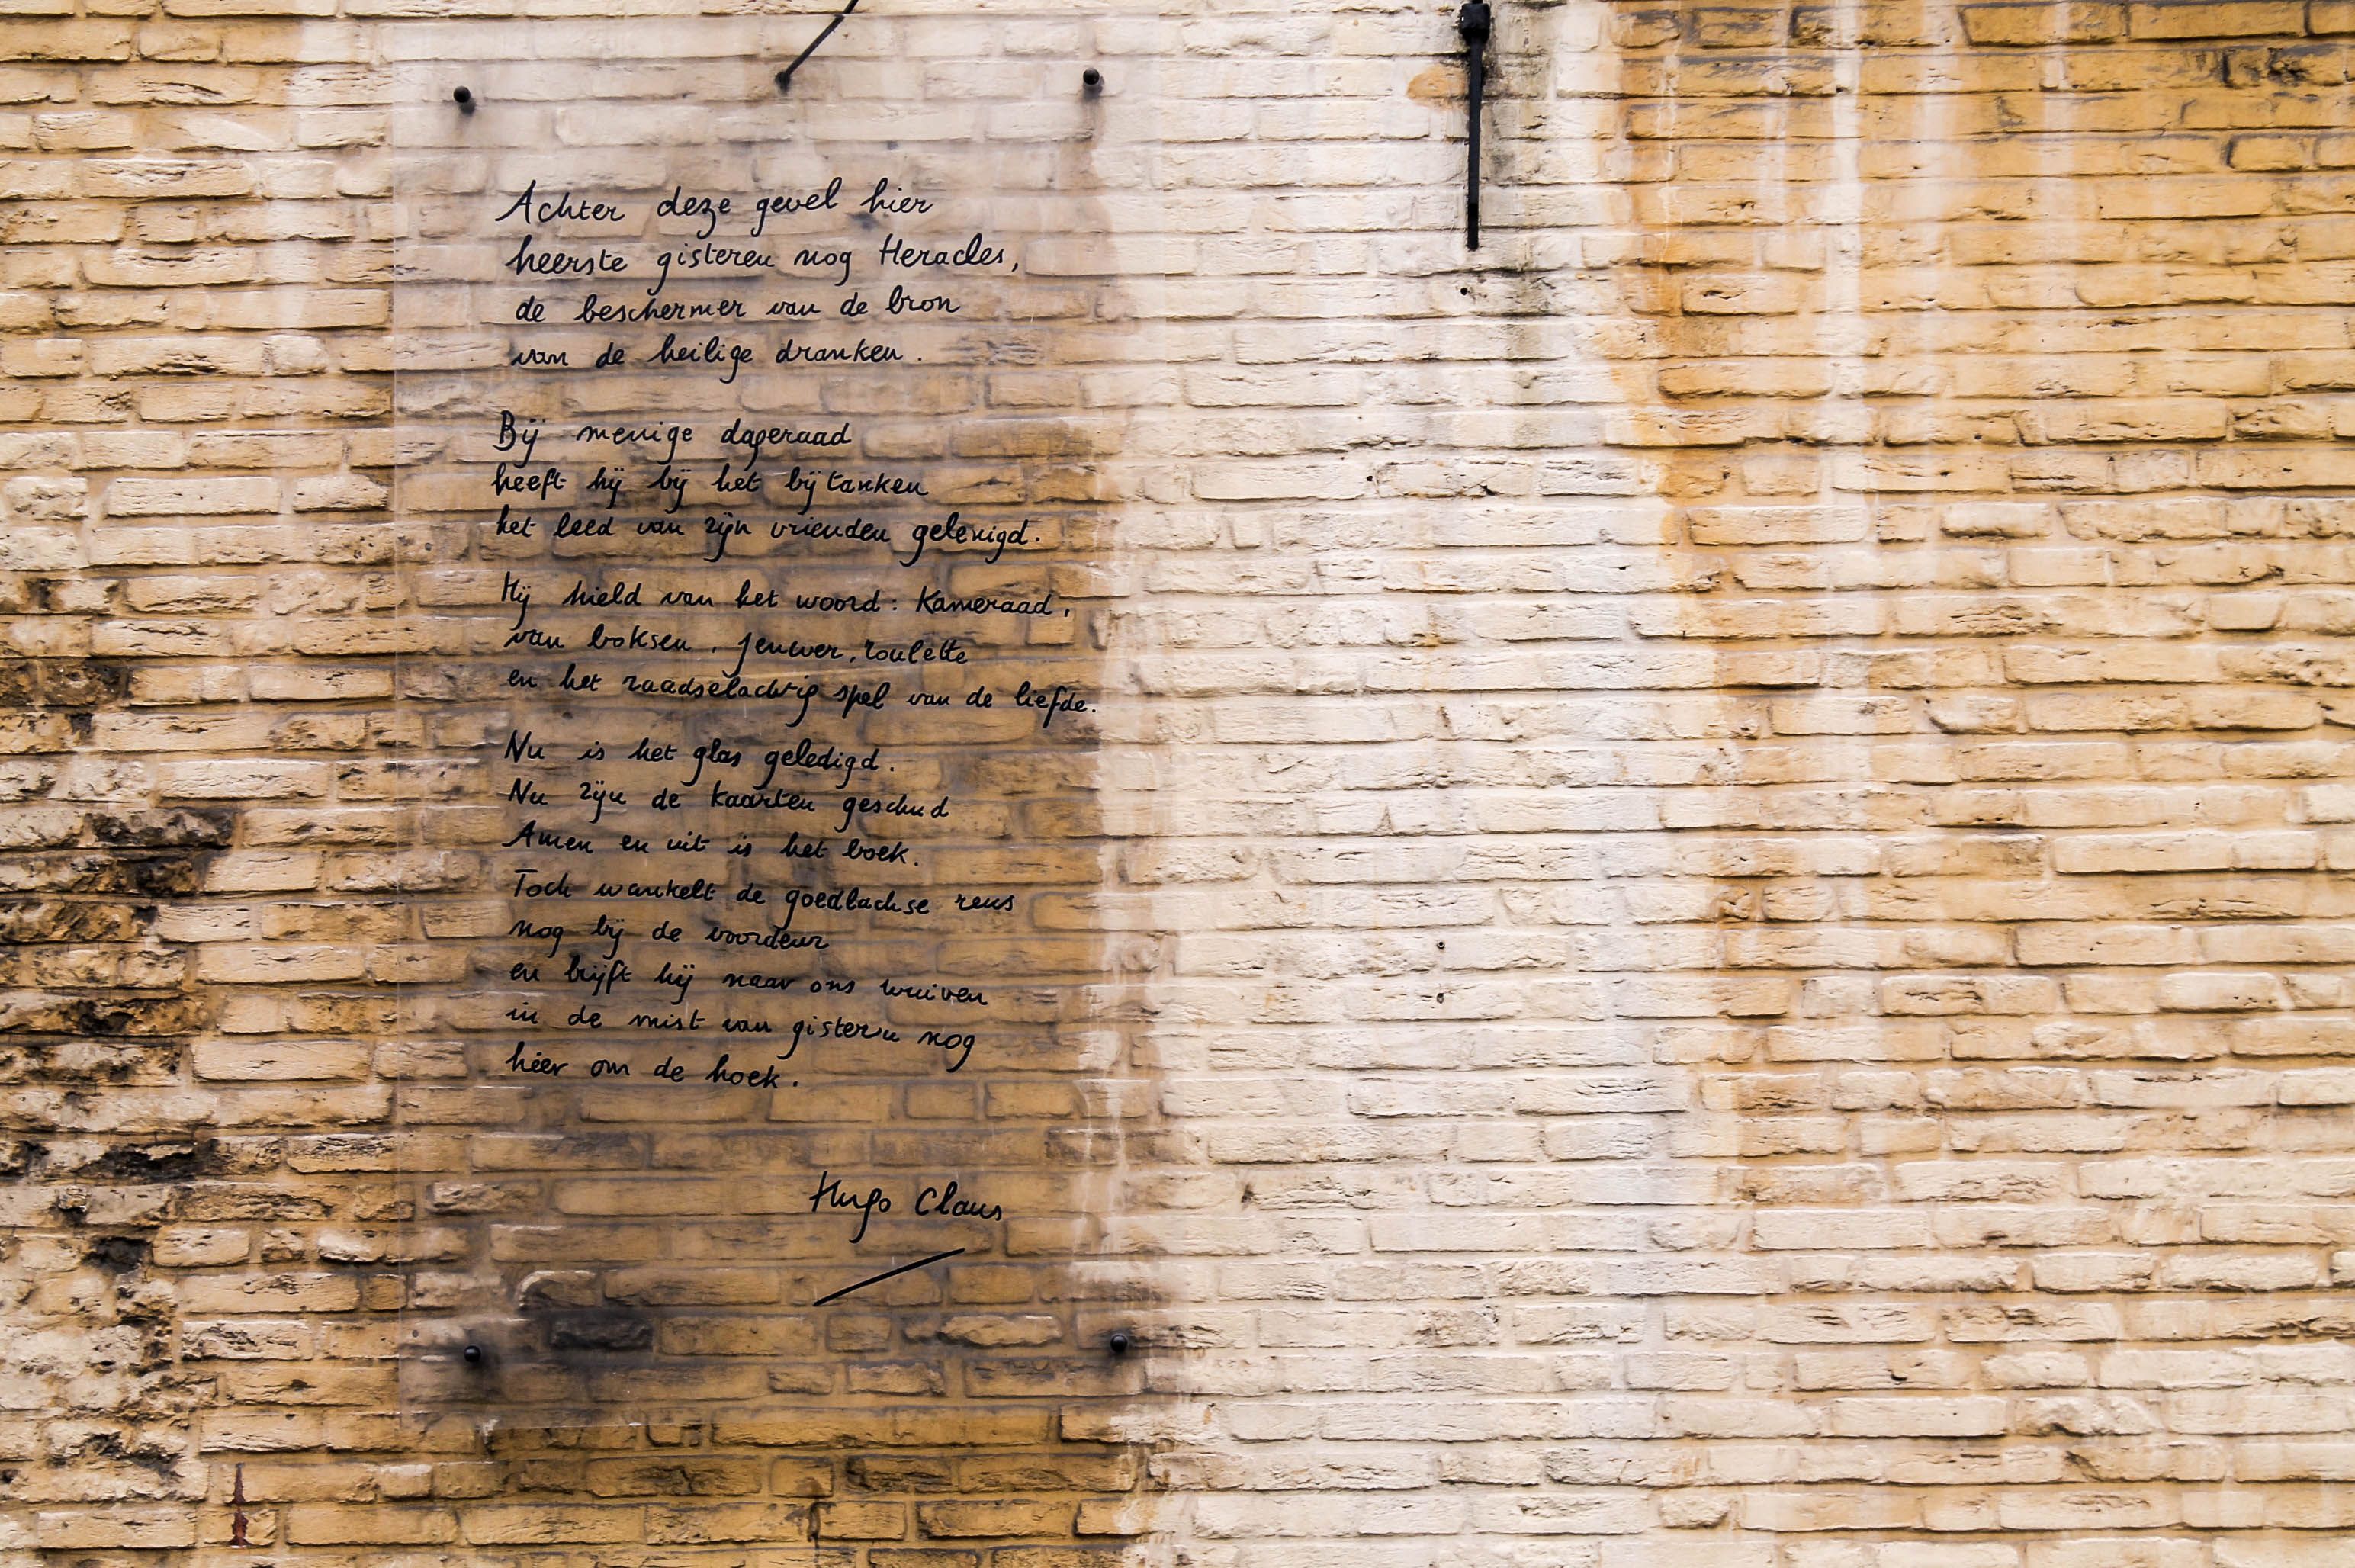 Achter deze gevel hier
heerste gisteren nog Heracles,
de beschermer van de bron
van de heilige dranken.
Bij menige dageraad
heeft hij bij het bijtanken
het leed van zijn vrienden gelenigd.
Hij hield van het woord: Kameraad,
van boksen, jenever, roulette
en het raadselachtig spel van de liefde.
Nu is het glas geledigd.
Nu zijn de kaarten geschud
Amen en uit is het boek.
Toch wankelt de goedlachse reus
nog bij de voordeur
en blijft hij naar ons wuiven
in de mist van gisteren nog
hier om de hoek.
Hugo Claus